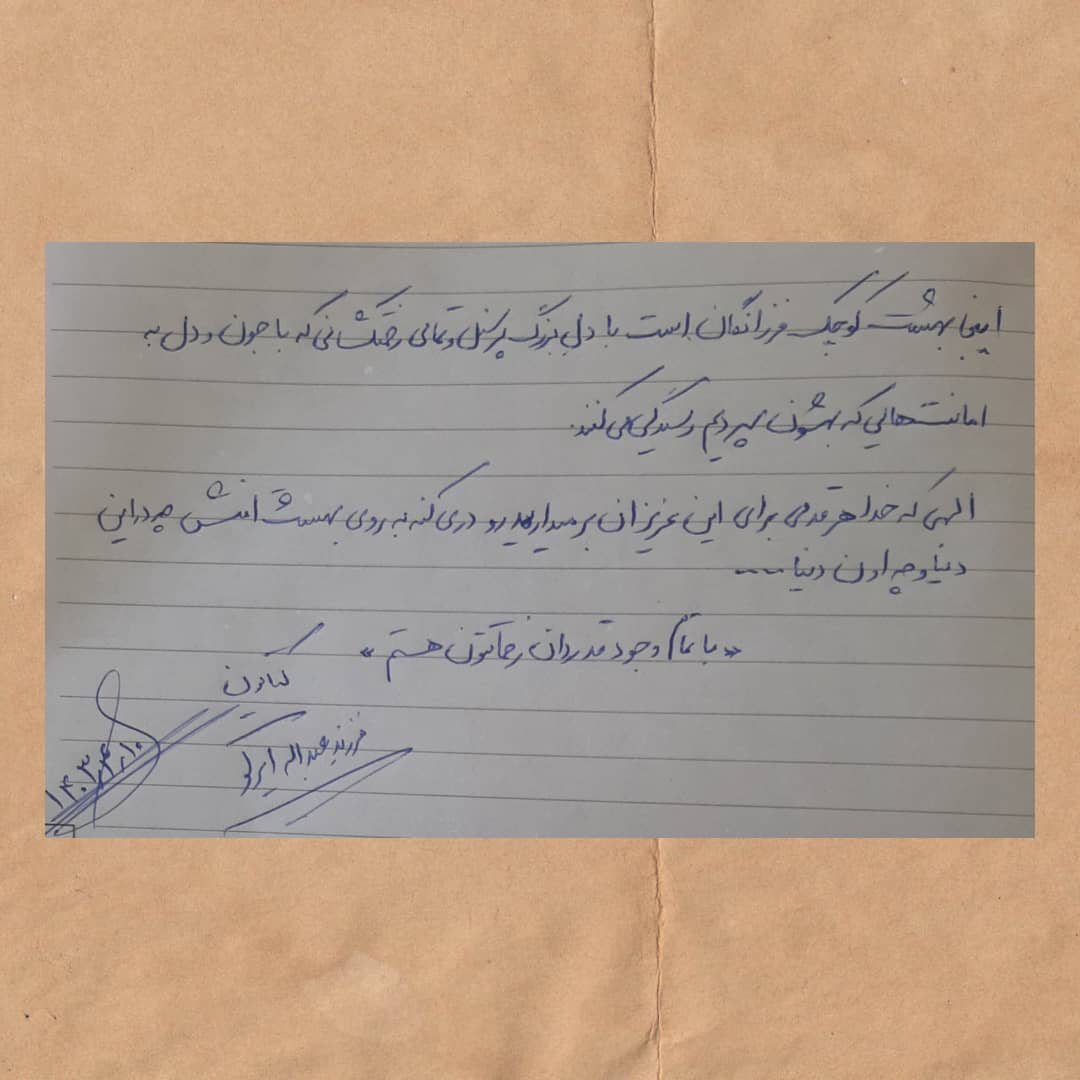 اینجا بهشت کوچک فرزانگان است با دل بزرگ پرسنل و تمامی زحمتکشانی که با جون و دل به
امانت‌هایی که بهشون سپردیم رسیدگی می‌کنند.
الهی که خدا هر قدمی برای این عزیزان برمیدارید رو دری کنه به روی بهشت امنش چه در این
دنیا و چه اون دنیا ----
«با تمام وجود قدردان زحماتتون هستم»
کتایون
فرزند عبداله
۱۴۰۳,۴,۱۰